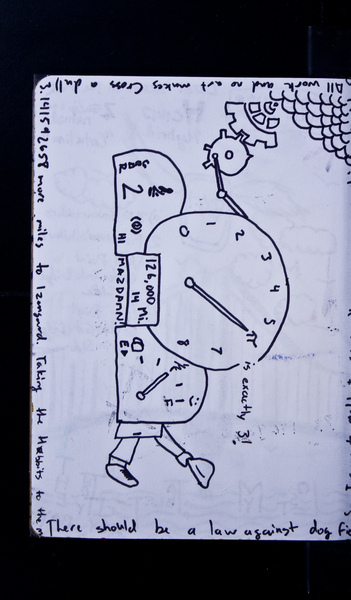 All work and no art makes Cross a dull
3.1411592658 more miles to Izengard. Taking the Hobbits to the
0
1
2
3
4
5
π is exactly 3!
7
8
2
(0)
HI
126,000 Mi
14
MAZDAMN!
E
1
F
There should be a law against dog